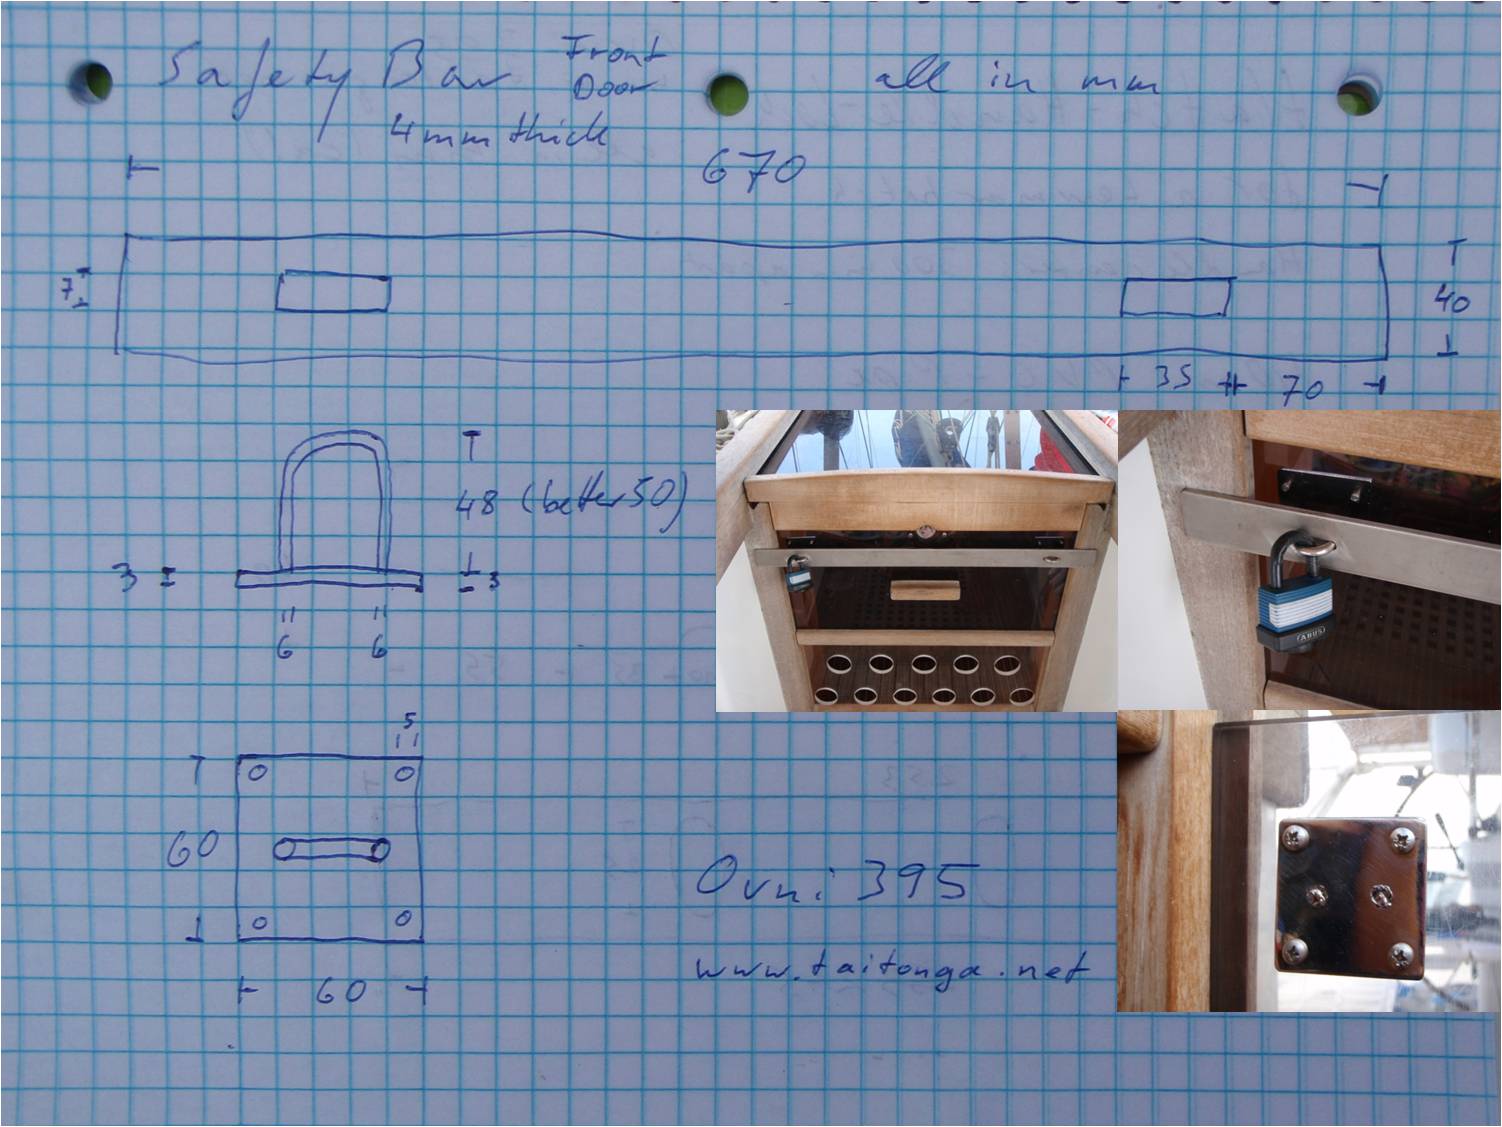 Safety Bar Front Door all in mm
4mm thick
670
7
40
35 70
48 (better 50)
3 3
6 6
ABUS
5
60
Ovni 395
www.taitonga.net
60